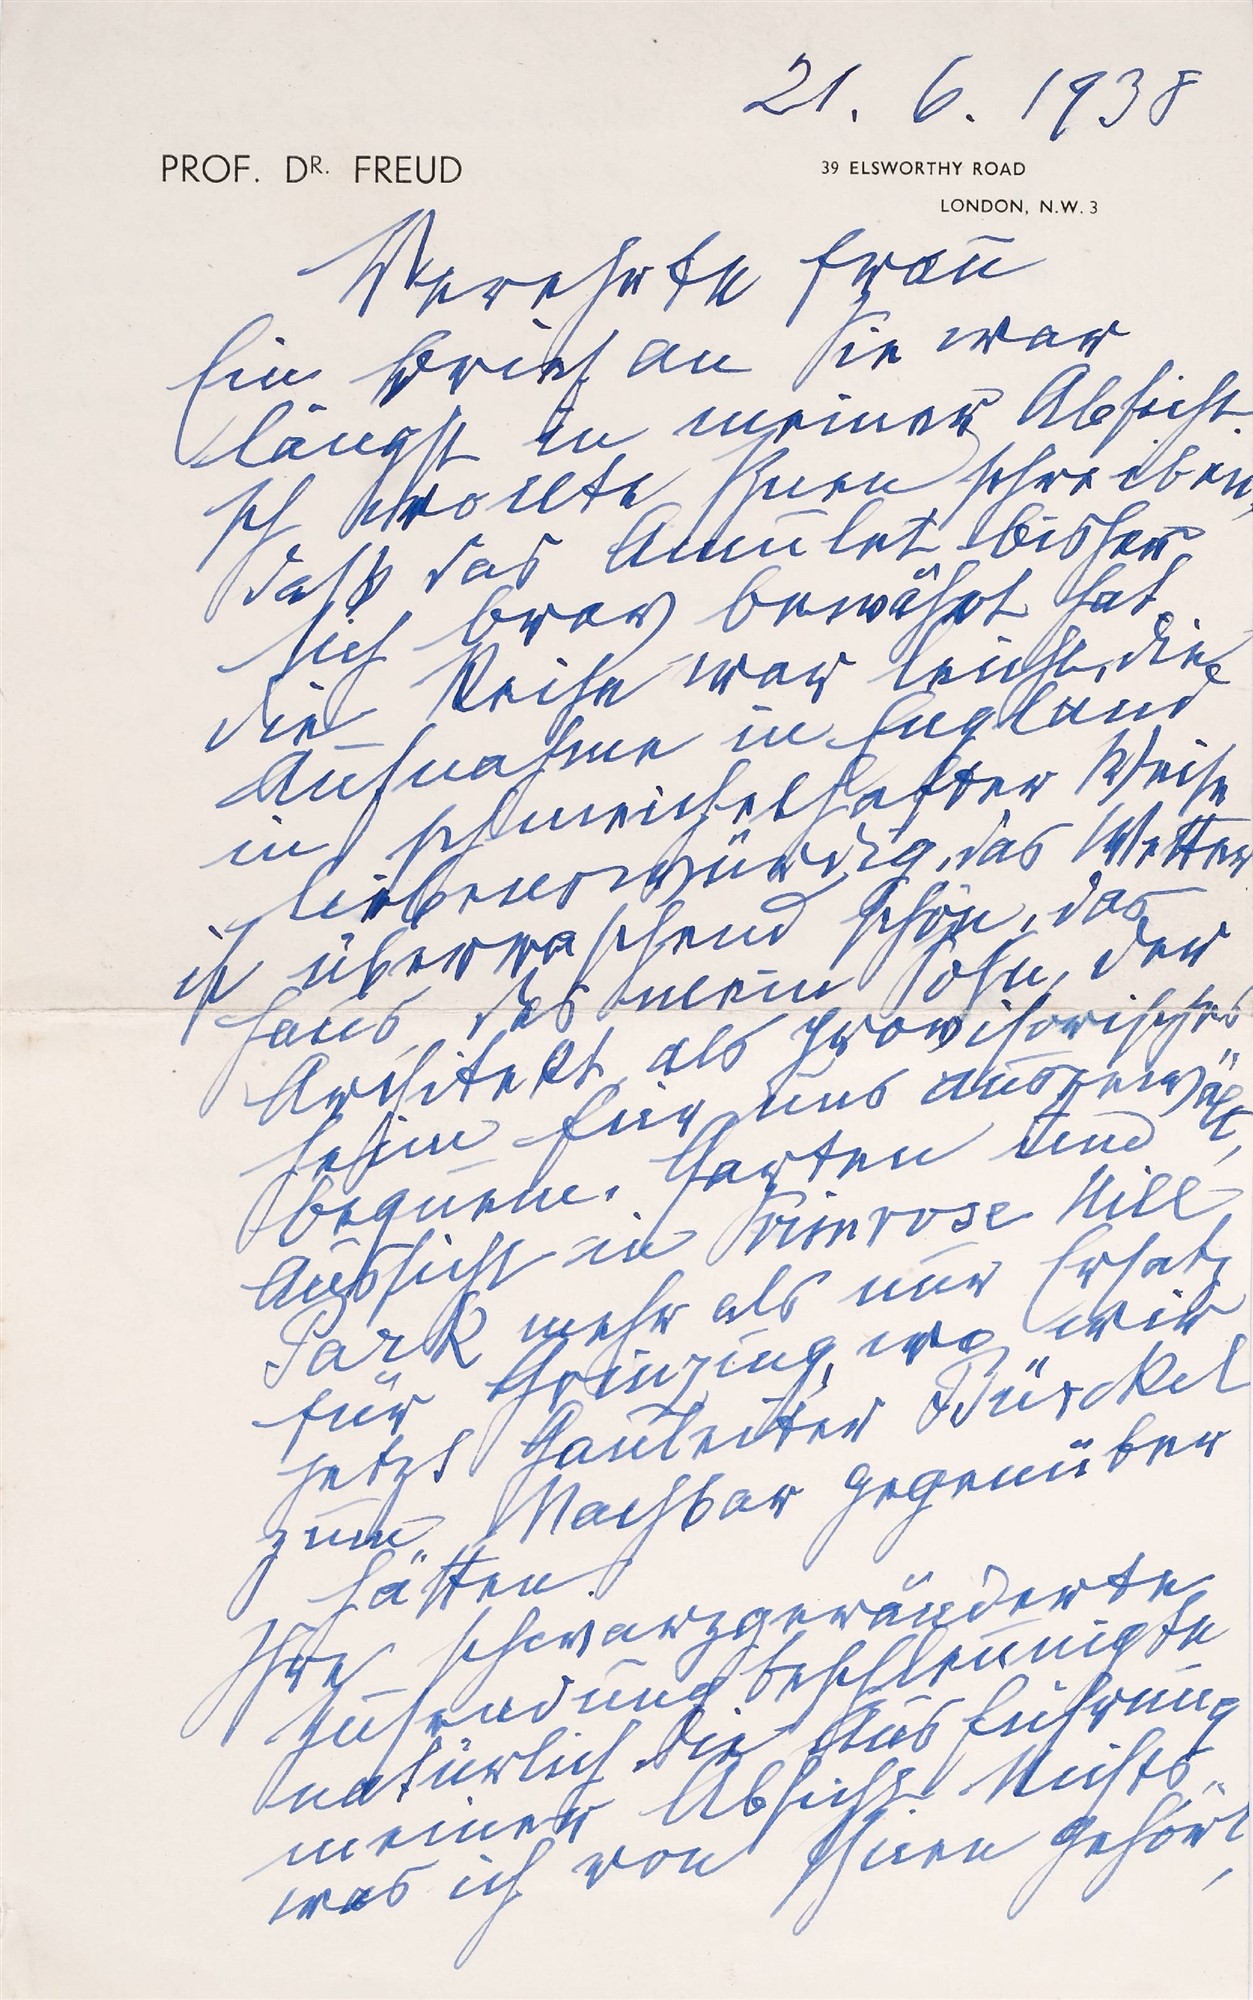 21. 6. 1938
PROF. DR. FREUD
39 ELSWORTHY ROAD
LONDON, N.W. 3
Verehrte Frau
Ein Brief an Sie war
längst in meiner Absicht.
Ich wollte Ihnen schreiben,
daß das Amulet bisher
sich brav bewährt hat.
die Reise war leicht, die
Aufnahme in England
in schmeichelhafter Weise
liebenswürdig, das Wetter
ist überraschend schön, das
Haus, das mein Sohn, der
Architekt als provisorisches
Heim für uns ausgewählt,
bequem. Garten und
Aussicht in Primrose Hill
Park mehr als nur Ersatz
für Grinzing, wo wir
jetzt Gauleiter Bürckel
zum Nachbar gegenüber
hätten.
Ihre schwarzgeränderte
Zusendung beschleunigte
natürlich die Ausführung
meiner Absicht. Nichts
was ich von Ihnen gehört,